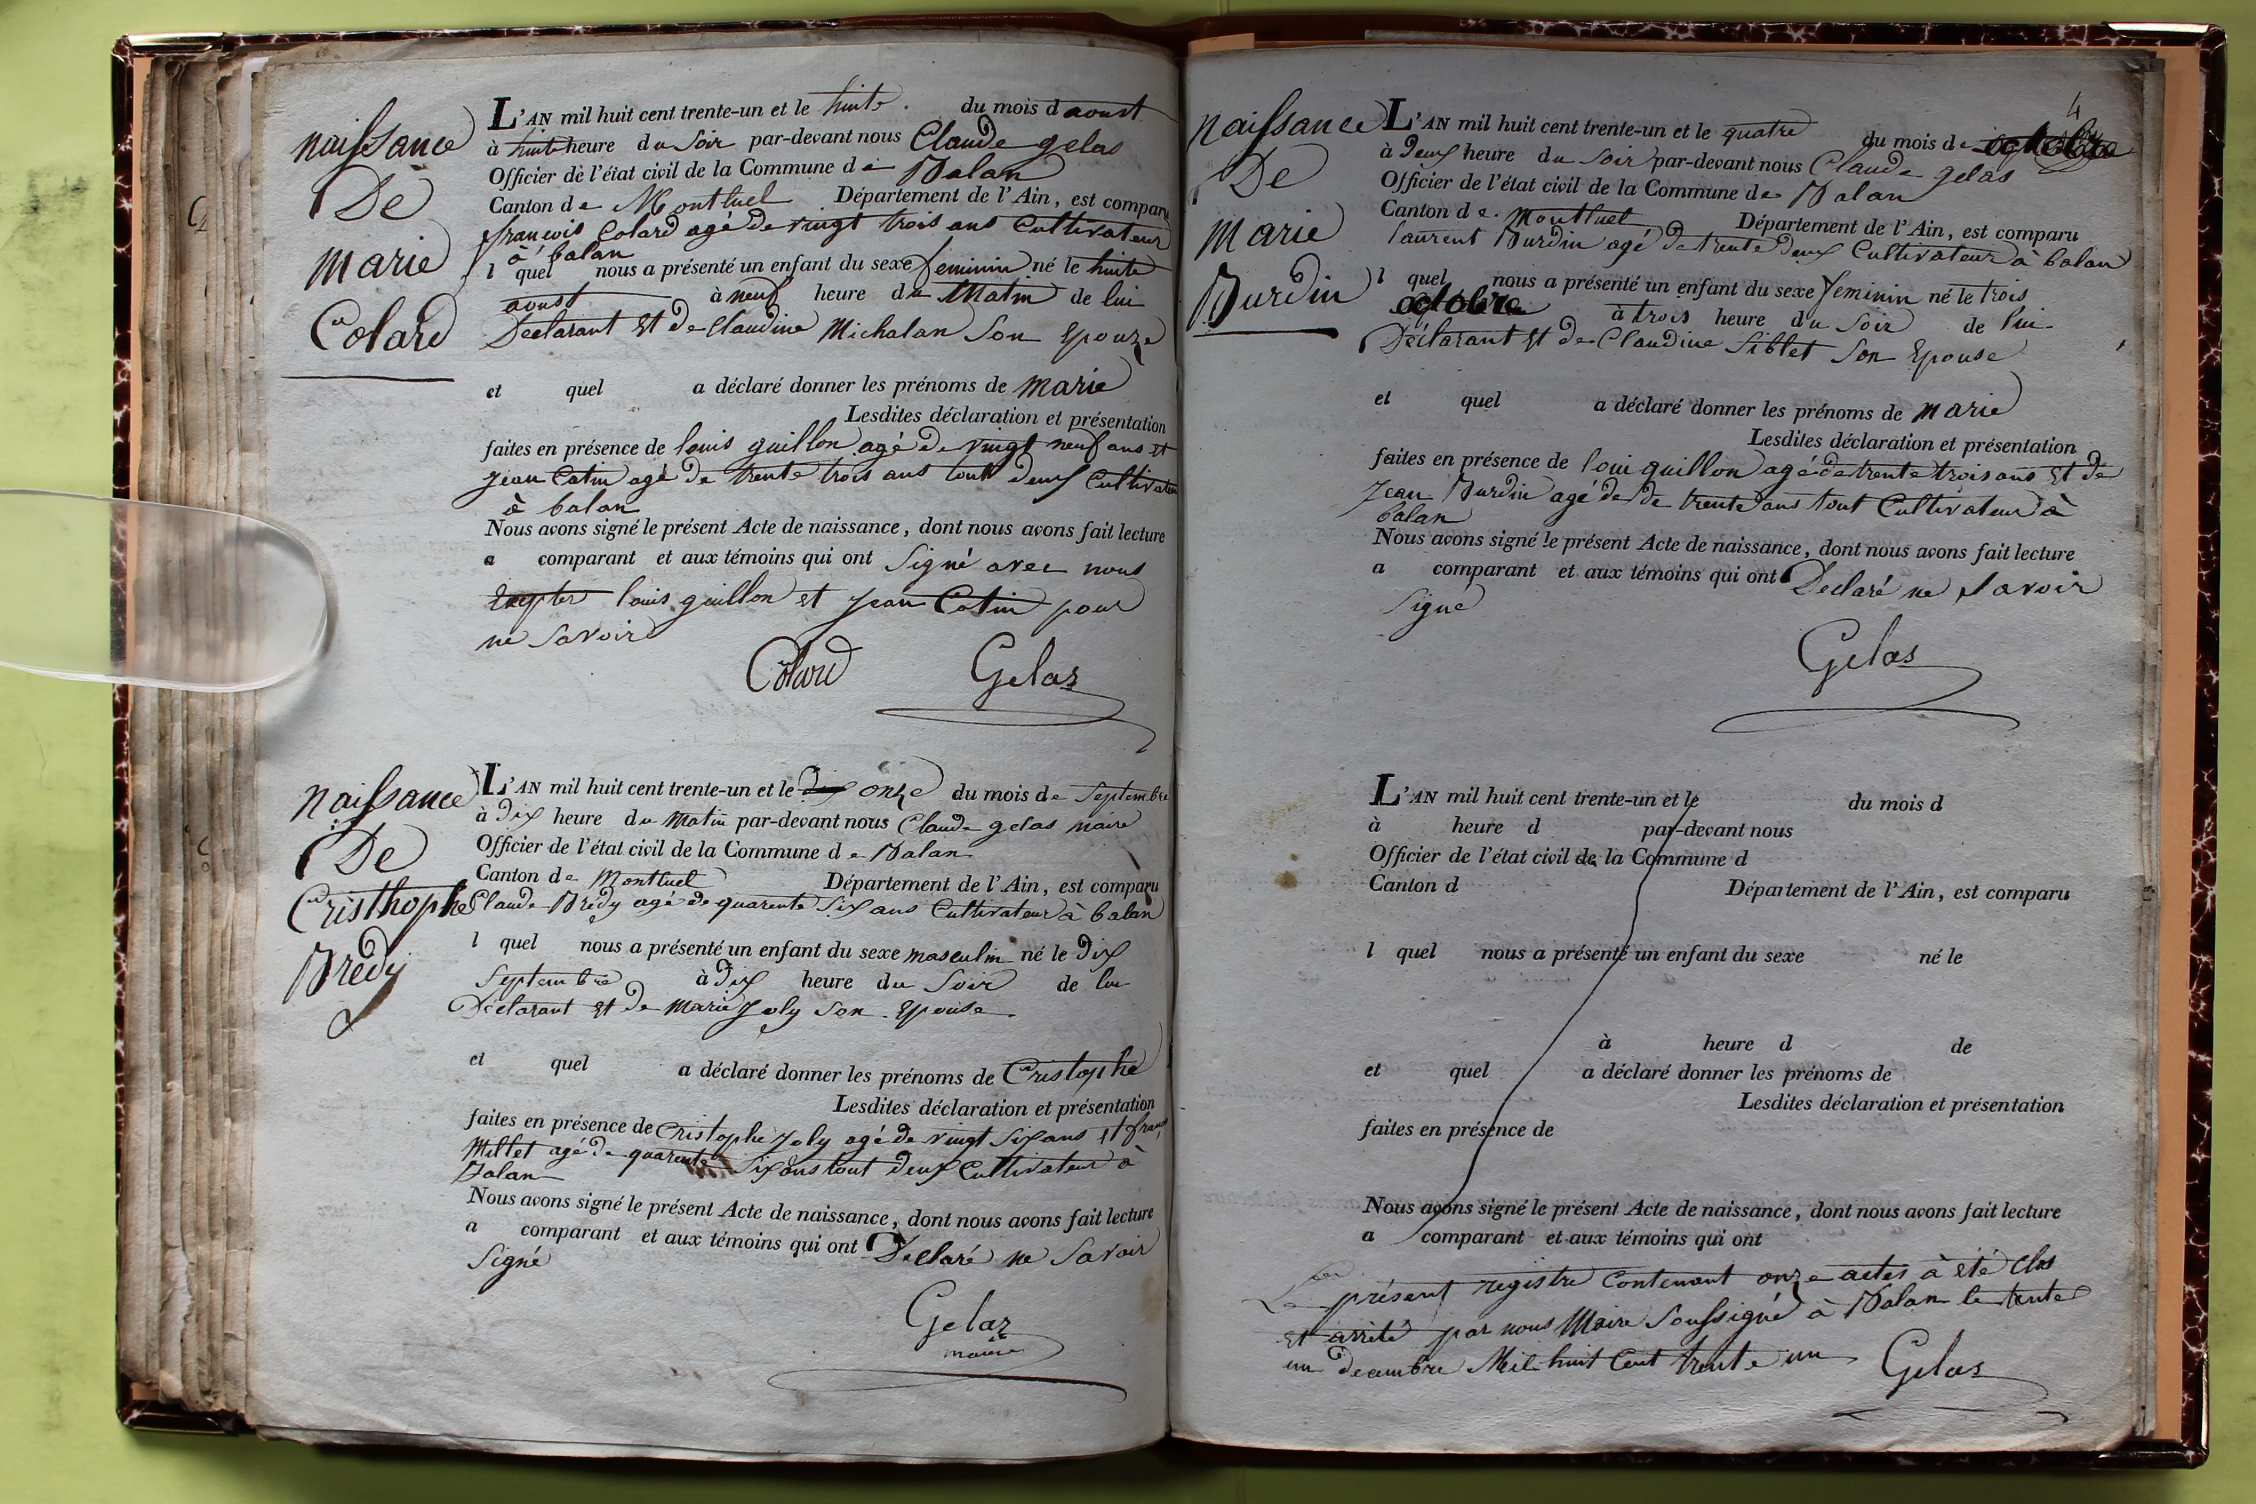 naissance
De
Marie
Colard
L'AN mil huit cent trente-un et le huite du mois d aoust
à huite heure du Soir par-devant nous Claude gelas
Officier de l'état civil de la Commune de Balan
Canton de Montluel Département de l'Ain, est comparu
francois Colard agé de vingt trois ans Cultivateur
à balan
l quel nous a présenté un enfant du sexe feminin né le huite
aoust à neuf heure du Matin de lui
Déclarant Et de Claudine Michalan Son Epouze
et quel a déclaré donner les prénoms de Marie
Lesdites déclaration et présentation
faites en présence de louis guillon agé de vingt neuf ans et
jean Catin agé de trente trois ans tout deux Cultivateur
à balan
Nous avons signé le présent Acte de naissance, dont nous avons fait lecture
a comparant et aux témoins qui ont Signé avec nous
Excepter louis guillon et jean Catin pour
ne Savoir
Colard Gelas
naissance
De
Cristhophe
Bredy
L'AN mil huit cent trente-un et le dix onze du mois de Septembre
à Dix heure du Matin par-devant nous Claude gelas maire
Officier de l'état civil de la Commune de Balan
Canton de Montluel Département de l'Ain, est comparu
Claude Bredy agé de quarente Six ans Cultivateur à balan
l quel nous a présenté un enfant du sexe masculin né le Dix
Septembre à Dix heure du Soir de lui
Déclarant Et de Marie Joly Son Epouse
et quel a déclaré donner les prénoms de Cristophe
Lesdites déclaration et présentation
faites en présence de Cristophe Joly agé de vingt Six ans et
Millet agé de quarente Six ans tout deux Cultivateur à
Balan
Nous avons signé le présent Acte de naissance, dont nous avons fait lecture
a comparant et aux témoins qui ont Declaré ne Savoir
Signé
Gelas
maire
4
naissance
De
Marie
Burdin
L'AN mil huit cent trente-un et le quatre du mois de octobre
à Deux heure du Soir par-devant nous Claude gelas
Officier de l'état civil de la Commune de Balan
Canton de Montluel Département de l'Ain, est comparu
laurent Burdin agé de trente deux Cultivateur à balan
l quel nous a présenté un enfant du sexe feminin né le trois
octobre à trois heure du Soir de lui
Déclarant Et de Claudine Siblet Son Epouse
et quel a déclaré donner les prénoms de Marie
Lesdites déclaration et présentation
faites en présence de loui guillon agé de trente trois ans Et de
Jean Burdin agé de de trente ans tout Cultivateur à
balan
Nous avons signé le présent Acte de naissance, dont nous avons fait lecture
a comparant et aux témoins qui ont Declaré ne Savoir
Signé
Gelas
L'AN mil huit cent trente-un et le du mois d
à heure d par-devant nous
Officier de l'état civil de la Commune d
Canton d Département de l'Ain, est comparu
l quel nous a présenté un enfant du sexe né le
à heure d de
et quel a déclaré donner les prénoms de
Lesdites déclaration et présentation
faites en présence de
Nous avons signé le présent Acte de naissance, dont nous avons fait lecture
a comparant et aux témoins qui ont
Le présent registre Contenant onze actes à été Clos
et arrété par nous Maire Soussigné à Balan le trente
un decembre Mil huit Cent trente un Gelas